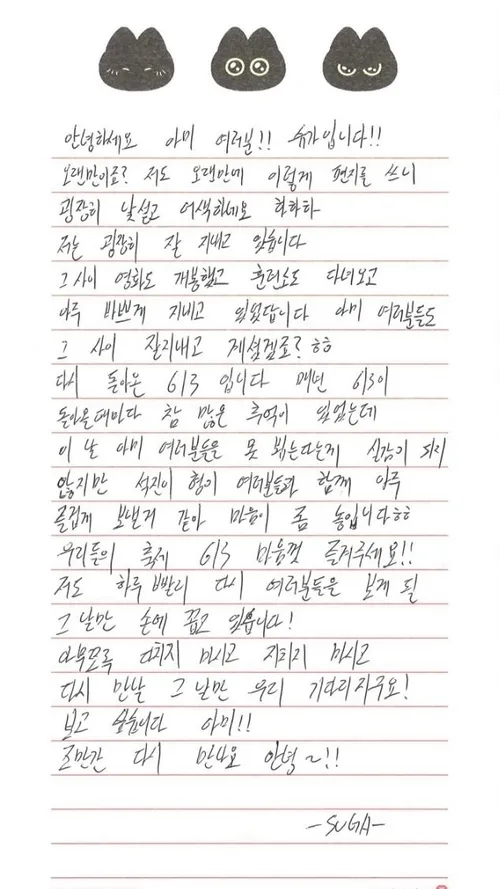 안녕하세요 아미 여러분!! 슈가입니다!!
오랜만이죠? 저도 오랜만에 이렇게 편지를 쓰니
굉장히 낯설고 어색하네요 하하하
저는 굉장히 잘 지내고 있습니다
그 사이 영화도 개봉했고 훈련소도 다녀오고
아주 바쁘게 지내고 있었답니다 아미 여러분들도
그 사이 잘지내고 계셨겠죠? ㅎㅎ
다시 돌아온 6/3 입니다 매년 6/3이
돌아올때마다 참 많은 추억이 있었는데
이 날 아미 여러분들을 못 뵙는다는게 실감이 되지
않지만 석진이 형이 여러분들과 함께 아주
즐겁게 보낸거 같아 마음이 좀 놓입니다ㅎㅎ
우리들의 축제 6/3 마음껏 즐겨주세요!!
저도 하루 빨리 다시 여러분들을 보게 될
그 날만 손에 꼽고 있습니다!
아무쪼록 다치지 마시고 지치지 마시고
다시 만날 그 날만 우리 기다리자구요!
보고 싶습니다 아미!!
조만간 다시 만나요 안녕~!!
-SUGA-